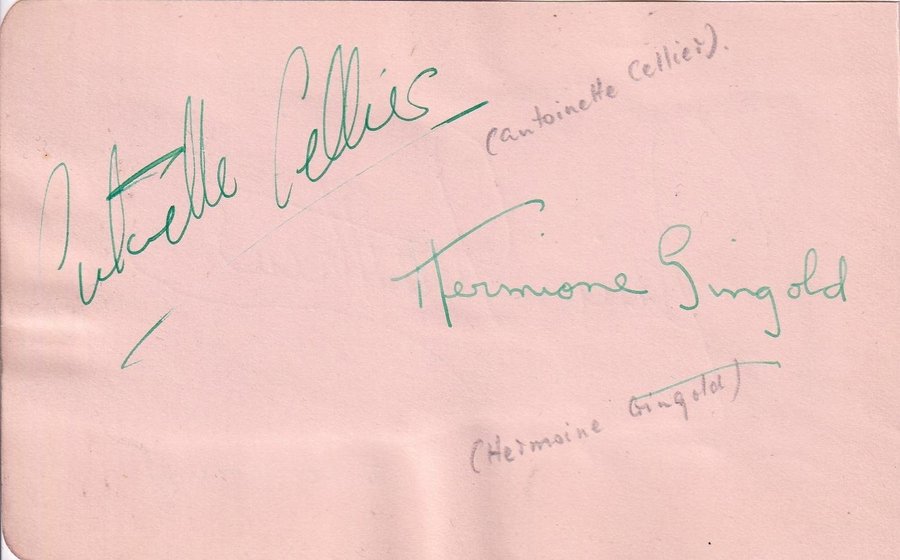 Antoinette Cellier
(Antoinette Cellier).
Hermione Gingold
(Hermoine Gingold)